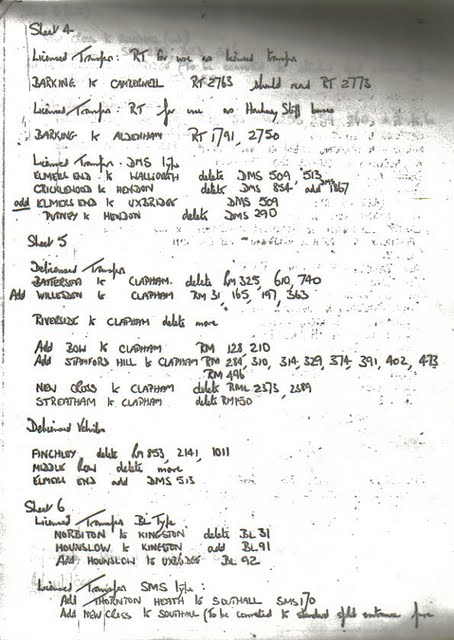 Sheet 4
Licensed Transfer: RT for use as licensed transfer
BARKING to CAMBERWELL RT 2763 should read RT 2773
Licensed Transfer: RT for use as Hackney Staff buses
BARKING to ALDENHAM RT 1791, 2750
Licensed Transfer. DMS type
ELMERS END to WALWORTH delete DMS 509, 513
CRICKLEWOOD to HENDON delete DMS 854 add DMS 867
add ELMERS END to UXBRIDGE DMS 509
PUTNEY to HENDON delete DMS 290
Sheet 5
Delicensed Transfer
BATTERSEA to CLAPHAM. delete RM 325, 610, 740
Add WILLESDEN to CLAPHAM RM 31, 165, 197, 363
RIVERSIDE to CLAPHAM delete move
Add BOW to CLAPHAM RM 128, 210
Add STAMFORD HILL to CLAPHAM RM 284, 310, 314, 329, 374, 391, 402, 473
RM 496
NEW CROSS to CLAPHAM delete RML 2373, 2389
STREATHAM to CLAPHAM delete RM 150
Delicensed Vehicles
FINCHLEY delete RM 853, 2141, 1011
MIDDLE ROW delete move
ELMERS END add DMS 513
Sheet 6
Licensed Transfer BL Type
NORBITON to KINGSTON delete BL 31
HOUNSLOW to KINGSTON add BL 91
Add HOUNSLOW to UXBRIDGE BL 92
Licensed Transfer SMS type:
Add THORNTON HEATH to SOUTHALL SMS 170
Add NEW CROSS to SOUTHALL (To be converted to standard split entrance